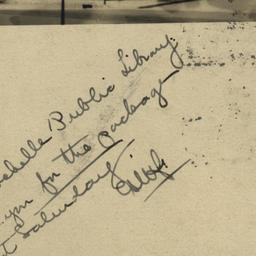 chelle Public Library
ym for the package
t Saturday